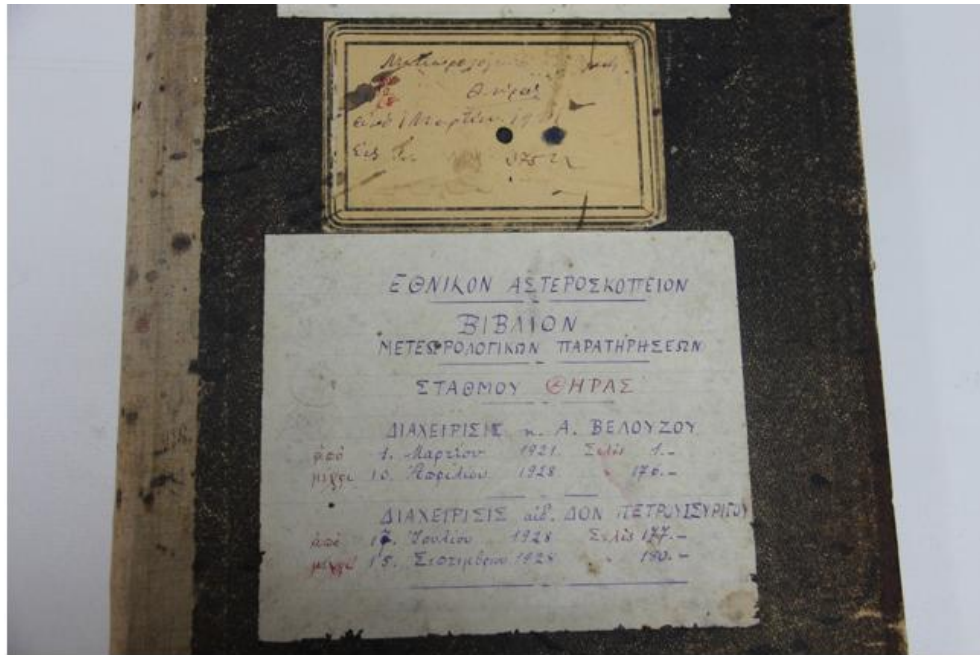 Θήρας
ἀπὸ 1 Μαρτίου 19
ΕΘΝΙΚΟΝ ΑΣΤΕΡΟΣΚΟΠΕΙΟΝ
ΒΙΒΛΙΟΝ
ΜΕΤΕΩΡΟΛΟΓΙΚΩΝ ΠΑΡΑΤΗΡΗΣΕΩΝ
ΣΤΑΘΜΟΥ ΘΗΡΑΣ
ΔΙΑΧΕΙΡΙΣΙΣ κ. Α. ΒΕΛΟΥΖΟΥ
ἀπό 1. Μαρτίου 1921 Σελὶς 1.-
μέχρι 10. Ἀπριλίου 1928 " 176.-
ΔΙΑΧΕΙΡΙΣΙΣ αἰδ. ΔΟΝ ΠΕΤΡΟΥ
ἀπό 17. Ἰουλίου 1928 Σελὶς 177.-
μέχρι 15. Σεπτεμβρίου 1928 " 190.-